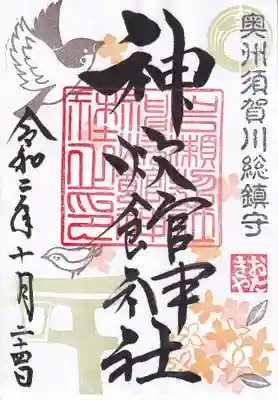 奥州須賀川総鎮守
神炊館神社
令和二年十月二十四日